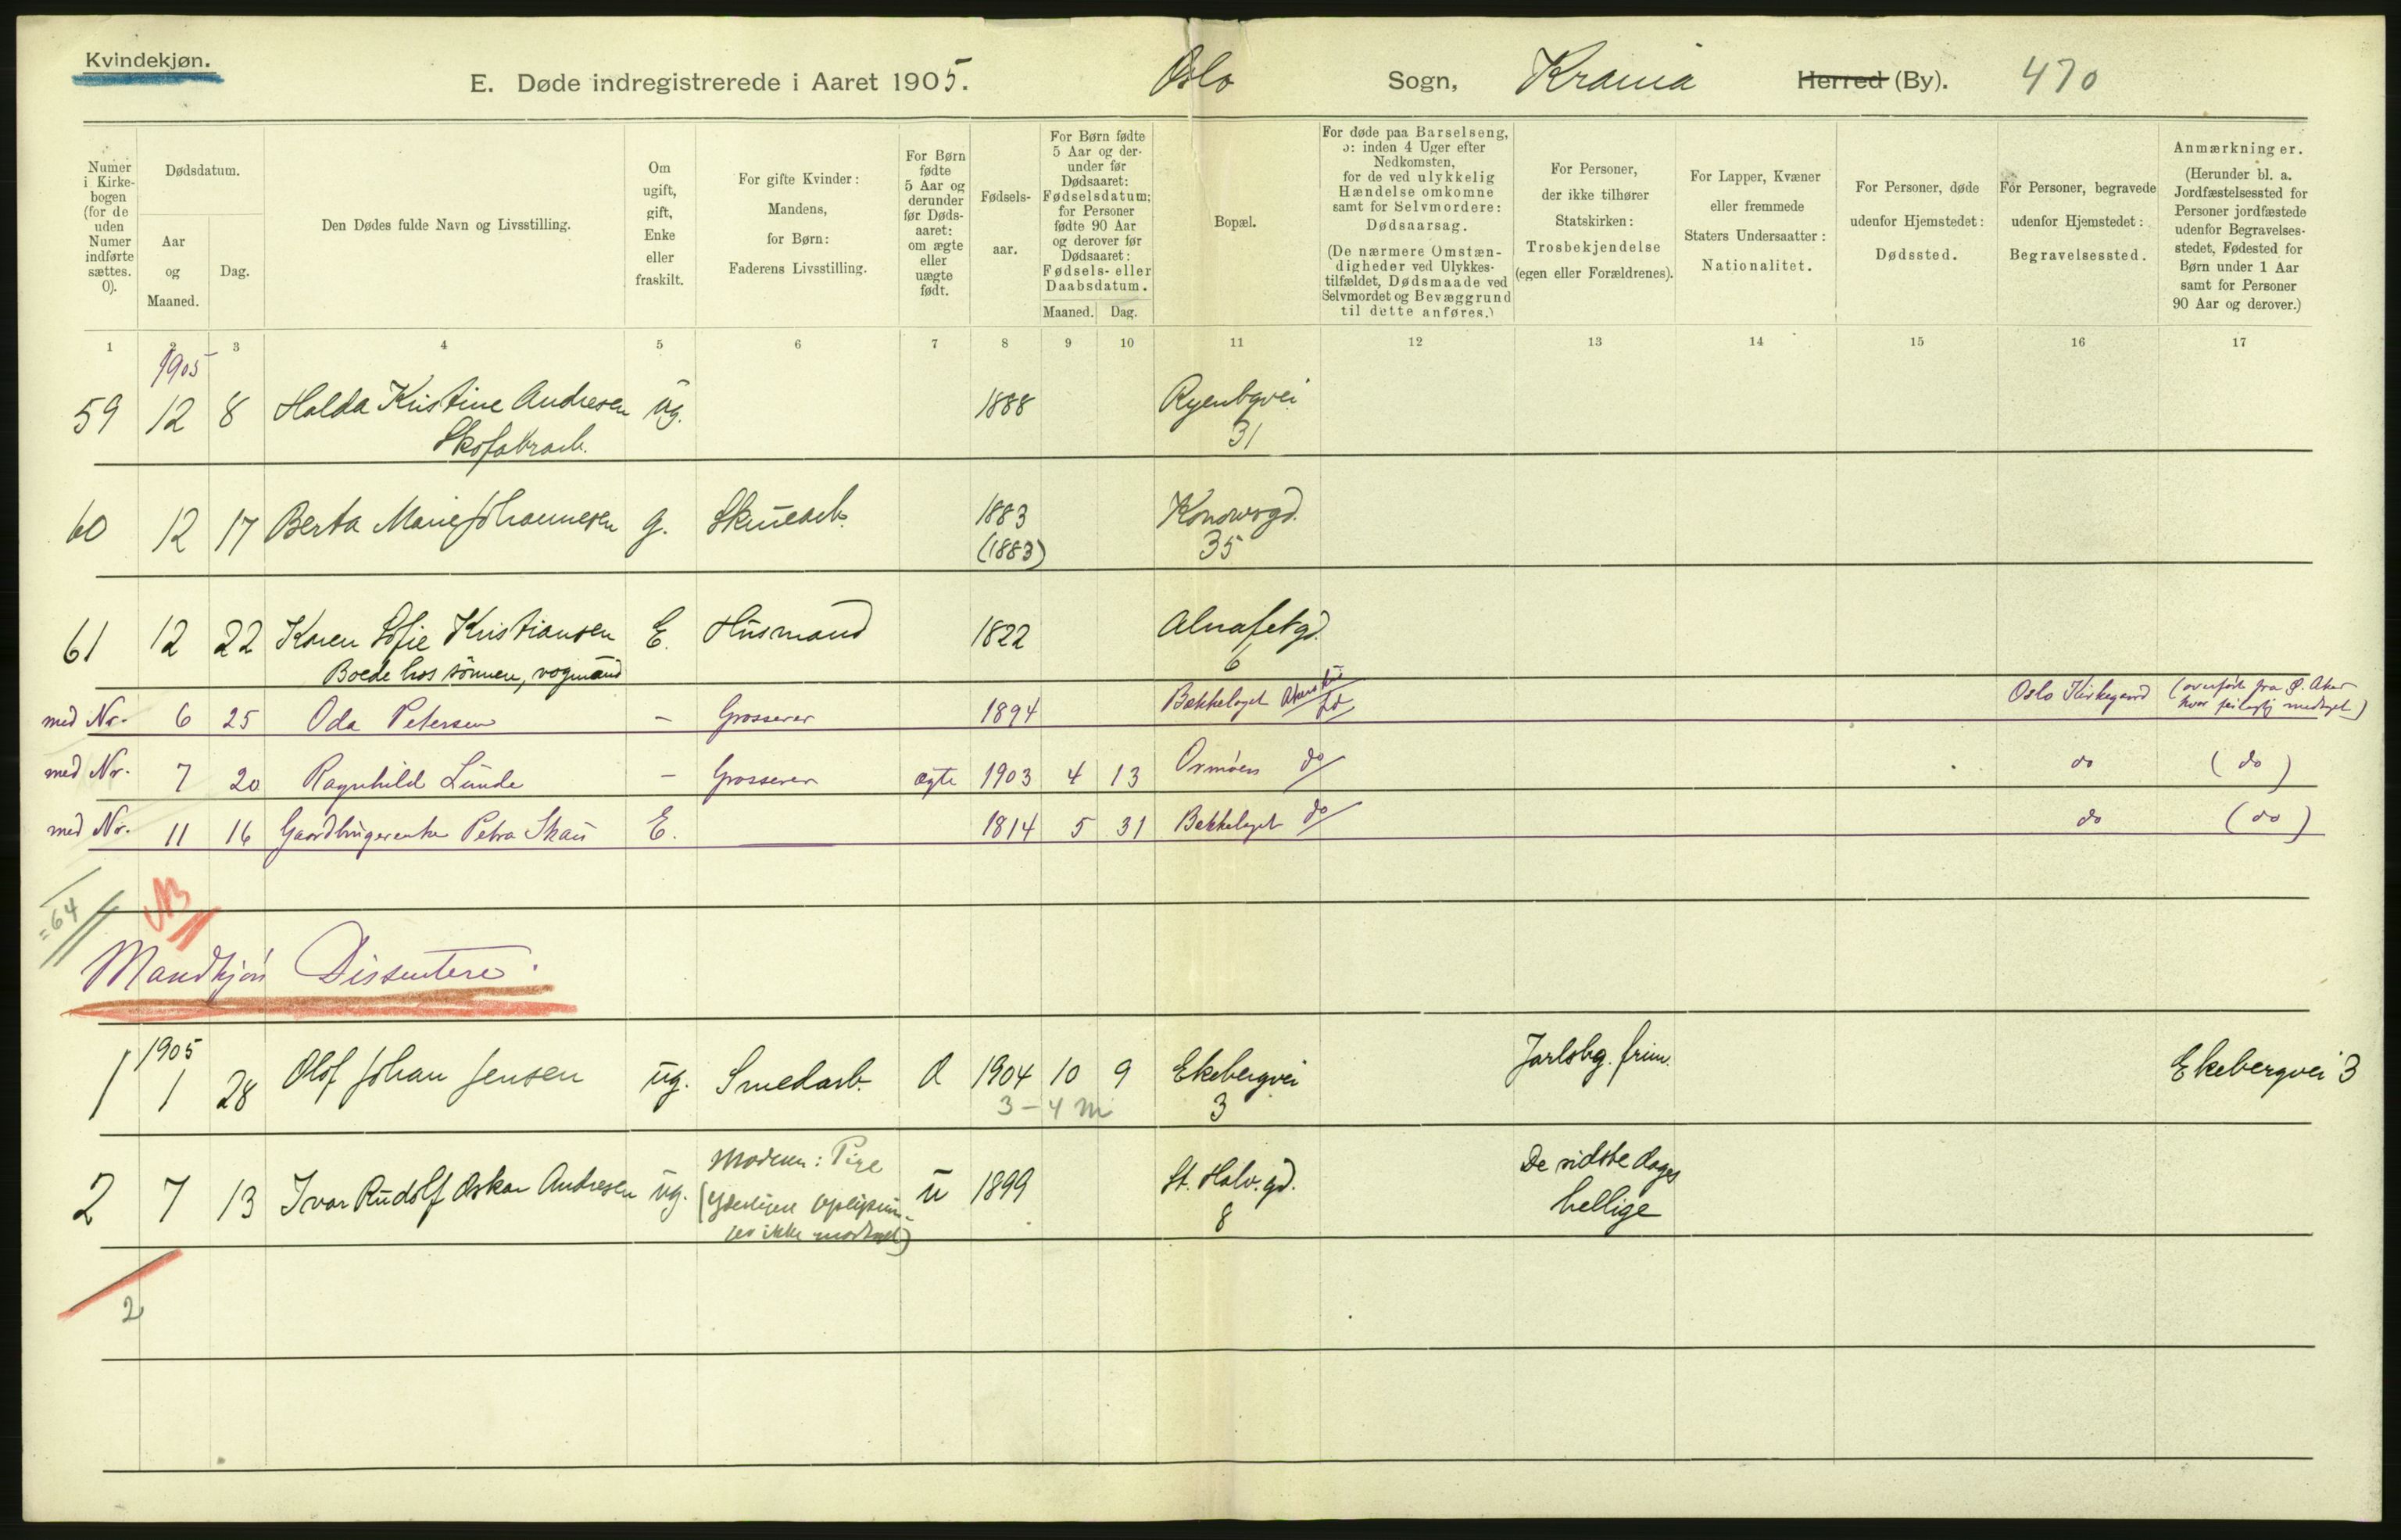 Kvindekjøn.
E. Døde indregistrerede i Aaret 1905. Oslo Sogn, Krania Herred (By). 470
Numer i Kirke-bogen (for de uden Numer indførte sættes. 0).
Dødsdatum.
Aar og Maaned.
Dag.
Den Dødes fulde Navn og Livsstilling.
Om ugift, gift, Enke eller fraskilt.
For gifte Kvinder: Mandens, for Børn: Faderens Livsstilling.
For Børn fødte 5 Aar og derunder før Døds-aaret: om ægte eller uægte født.
Fødsels-aar.
For Børn fødte 5 Aar og der-under før Dødsaaret: Fødselsdatum; for Personer fødte 90 Aar og derover før Dødsaaret: Fødsels- eller Daabsdatum.
Maaned. Dag.
Bopæl.
For døde paa Barselseng, ɔ: inden 4 Uger efter Nedkomsten, for de ved ulykkelig Hændelse omkomne samt for Selvmordere: Dødsaarsag.
(De nærmere Omstæn-digheder ved Ulykkes-tilfældet, Dødsmaade ved Selvmordet og Bevæggrund til dette anføres.)
For Personer, der ikke tilhører Statskirken: Trosbekjendelse (egen eller Forældrenes).
For Lapper, Kvæner eller fremmede Staters Undersaatter: Nationalitet.
For Personer, døde udenfor Hjemstedet: Dødssted.
For Personer, begravede udenfor Hjemstedet: Begravelsessted.
Anmærkninger.
(Herunder bl. a. Jordfæstelsessted for Personer jordfæstede udenfor Begravelses-stedet, Fødested for Børn under 1 Aar samt for Personer 90 Aar og derover.)
1 2 3 4 5 6 7 8 9 10 11 12 13 14 15 16 17
1905
59 12 8 Halda Kristine Andresen ug. 1888 Ryenbgvei
Skofabrarb. 31
60 12 17 Berta Marie Johannesen g. Skuearb. 1883 Konowsgd.
(1883) 35
61 12 22 Karen Sofie Kristiansen E. Husmand 1822 Alnafetgd.
Boede hos sönnen, vogmand 6
med Nr. 6 25 Oda Petersen – Grosserer 1894 Bækkelaget Oslo Kirkegaard (overført fra Ø. Aker
hvor feilagtig medtaget)
med Nr. 7 20 Ragnhild Lunde – Grosserer ægte 1903 4 13 Ormöen do do (do)
med Nr. 11 16 Gaardbrugerenke Petra Skau E. 1814 5 31 Bækkelaget do do (do)
=64 NB
Mandkjøn Dissentere.
1905
1 1 28 Olof Johan Jensen ug. Smedarb. Æ 1904 10 9 Ekebergvei Jarlsbg. frim. Ekebergvei 3
3–4 m 3
2 7 13 Ivar Rudolf Oskar Andresen ug. Moderen: Pige u 1899 St. Halv. gd. De sidste dages
(Yderligere Oplysnin- 8 hellige
ger ikke modtaget)
2